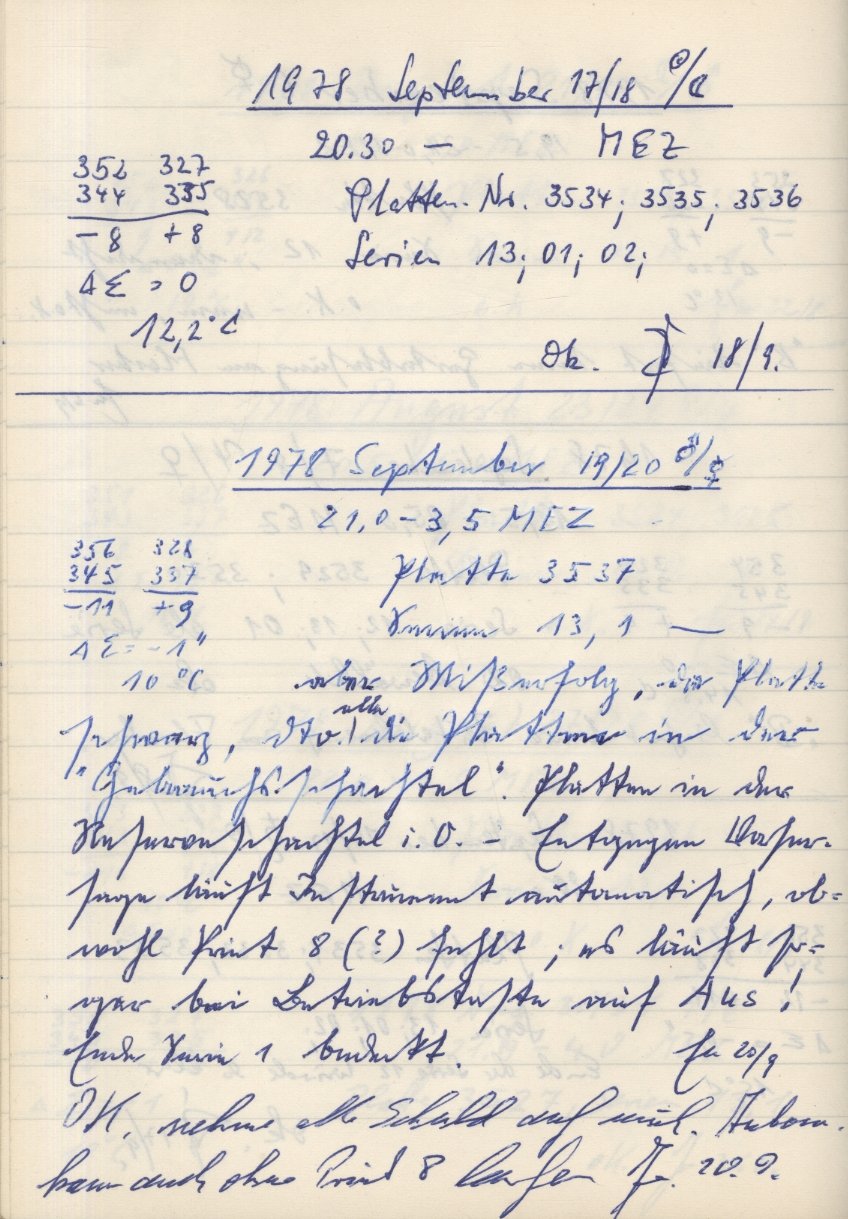 1978 September 17/18 ☉/☾
20.30 — MEZ
352 327
344 335
-8 +8
ΔΣ = 0
12,2°C
Platten-Nr. 3534; 3535; 3536
Serien 13; 01; 02;
Ok. 18/9.
1978 September 19/20 ♂/☿
21,0 - 3,5 MEZ
356 328
345 337
-11 +9
ΔΣ = -1"
10 °C
Platte 3537
Serien 13, 1 —
aber Mißerfolg, da Platte
schwarz, dto. alle die Platten in der
"Gebrauchsschachtel". Platten in der
Reserveschachtel i.O. - Entgegen Vorher-
sage läuft Instrument automatisch, ob-
wohl Print 8 (?) fehlt; es läuft so-
gar bei Betriebstaste auf Aus!
Ende Serie 1 bedeckt. 20/9
OK, nehme alle Schuld auf mich. Autom.
kann auch ohne Print 8 laufen 20.9.